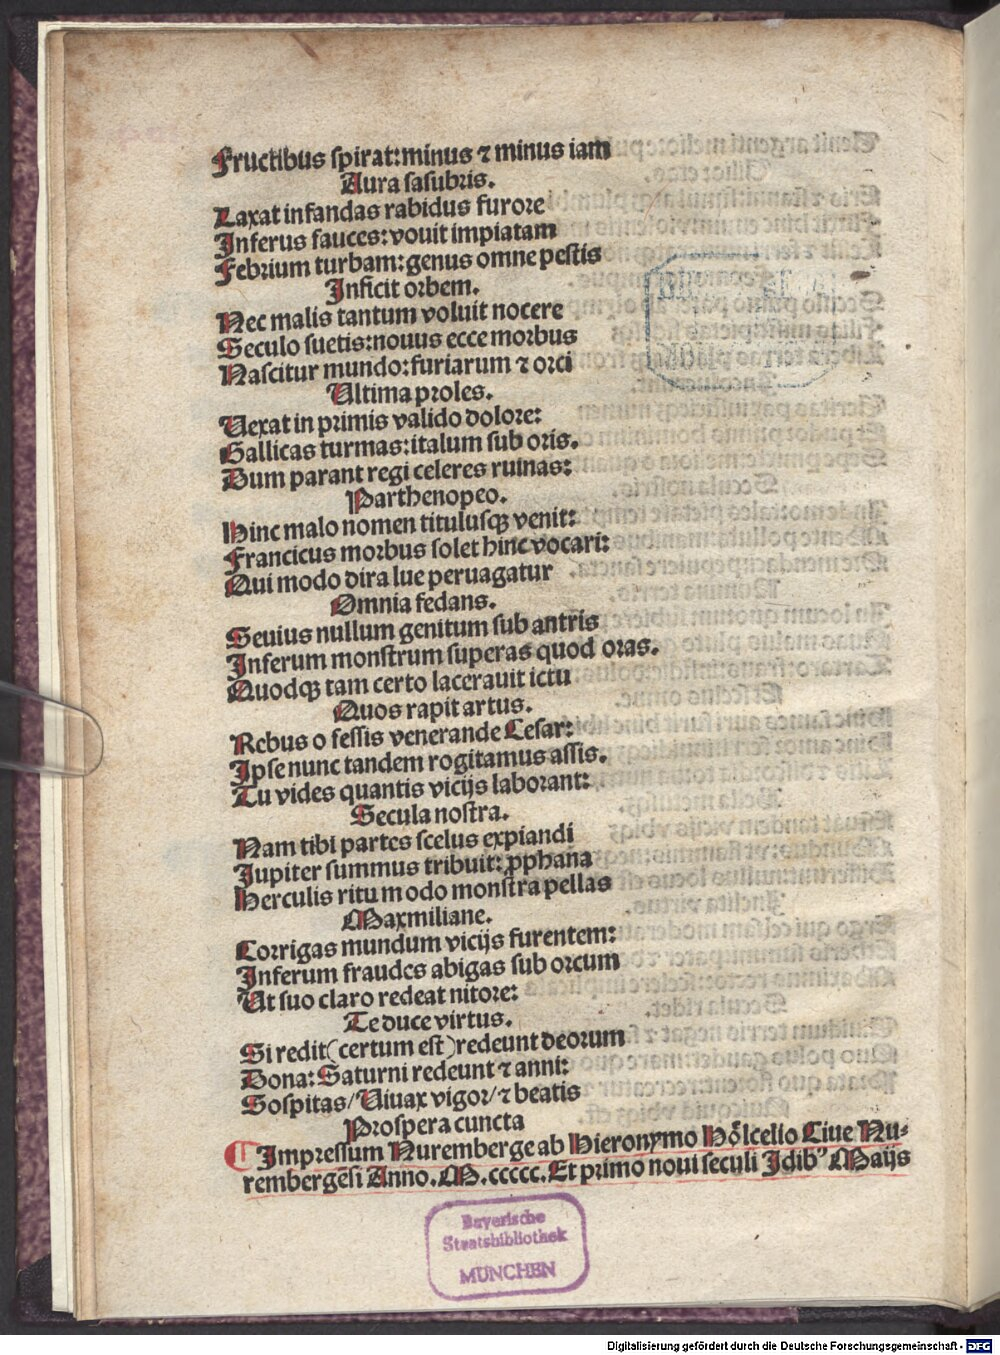 Fructibus spirat: minus ⁊ minus iam
Aura sasubris.
Laxat infandas rabidus furore
Inferus fauces: vouit impiatam
Febrium turbam: genus omne pestis
Inficit orbem.
Nec malis tantum voluit nocere
Seculo suetis: nouus ecce morbus
Nascitur mundo: furiarum ⁊ orci
Ultima proles.
Uexat in primis valido dolore:
Gallicas turmas: italum sub oris.
Dum parant regi celeres ruinas:
Parthenopeo.
Hinc malo nomen titulusqꝫ venit:
Francicus morbus solet hinc vocari:
Qui modo dira lue peruagatur
Omnia fedans.
Seuius nullum genitum sub antris
Inferum monstrum superas quod oras.
Quodqꝫ tam certo lacerauit ictu
Quos rapit artus.
Rebus o fessis venerande Cesar:
Ipse nunc tandem rogitamus assis.
Tu vides quantis vicijs laborant:
Secula nostra.
Nam tibi partes scelus expiandi
Jupiter summus tribuit: ꝓphana
Herculis ritu modo monstra pellas
Maxmiliane.
Corrigas mundum vicijs furentem:
Inferum fraudes abigas sub orcum
Ut suo claro redeat nitore:
Te duce virtus.
Si redit (certum est) redeunt deorum
Dona: Saturni redeunt ⁊ anni:
Sospitas/ Uiuax vigor/ ⁊ beatis
Prospera cuncta
¶ Impressum Nuremberge ab Hieronymo Hölcelio Ciue Nu-
rembergēsi Anno. M.ccccc. Et primo noui seculi Idibꝰ Maijs
Bayerische
Staatsbibliothek
MÜNCHEN
Digitalisierung gefördert durch die Deutsche Forschungsgemeinschaft - DFG